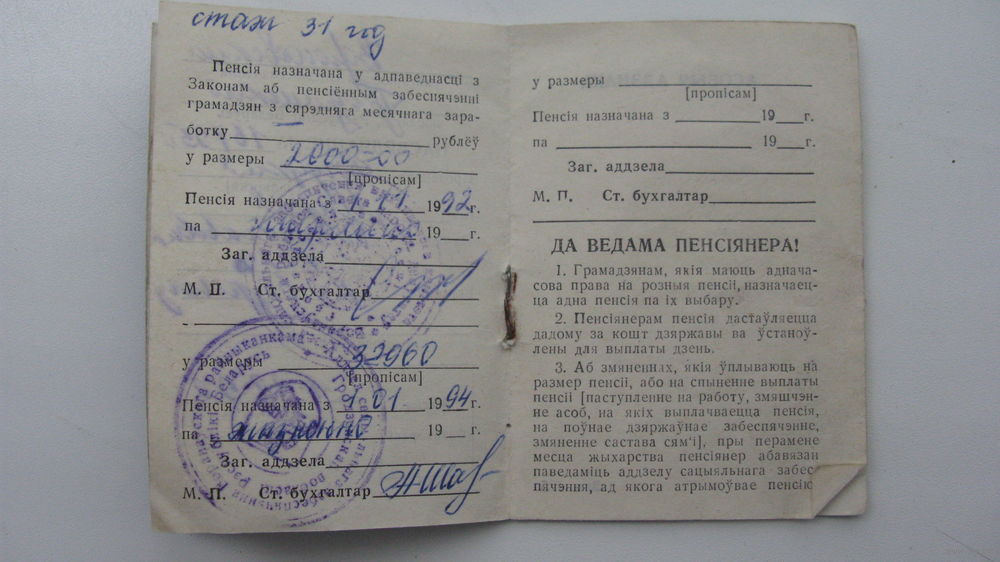 стаж 31 год
Пенсія назначана у адпаведнасці з
Законам аб пенсіённым забеспячэнні
грамадзян з сярэдняга месячнага зара-
ботку рублёў
у размеры 2000-00
[пропісам]
Пенсія назначана з 1.11 1992г.
па 19 г.
Заг. аддзела
М. П. Ст. бухгалтар
у размеры 32960
[пропісам]
Пенсія назначана з 1.01 1994г.
па 19 г.
Заг. аддзела
М. П. Ст. бухгалтар
у размеры
[пропісам]
Пенсія назначана з 19 г.
па 19 г.
Заг. аддзела
М. П. Ст. бухгалтар
ДА ВЕДАМА ПЕНСІЯНЕРА!
1. Грамадзянам, якія маюць аднача-
сова права на розныя пенсіі, назначаец-
ца адна пенсія па іх выбару.
2. Пенсіянерам пенсія дастаўляецца
дадому за кошт дзяржавы ва ўстаноў-
лены для выплаты дзень.
3. Аб змяненнях, якія ўплываюць на
размер пенсіі, або на спыненне выплаты
пенсіі [паступленне на работу, змяшчэн-
не асоб, на якіх выплачваецца пенсія,
на поўнае дзяржаўнае забеспячэнне,
змяненне састава сям'і], пры перамене
месца жыхарства пенсіянер абавязан
паведаміць аддзелу сацыяльнага забес
пячэння, ад якога атрымоўвае пенсію